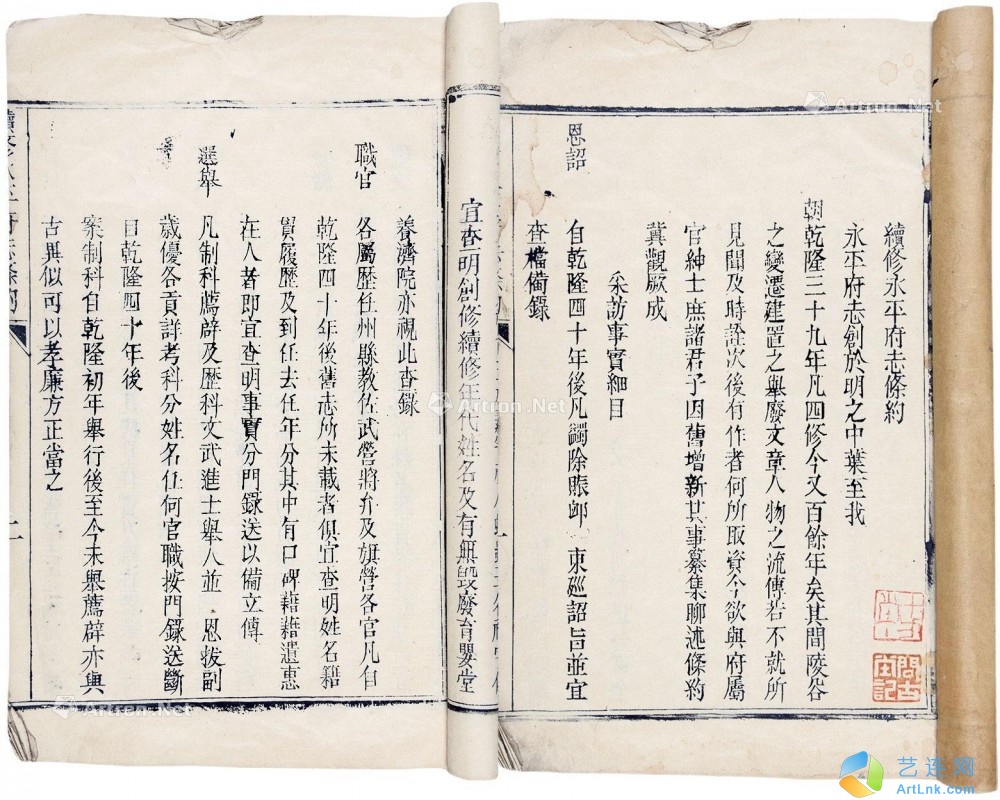 續修永平府志條約
永平府志創於明之中葉至我
朝乾隆三十九年凡四修今又百餘年矣其間陵谷
之變遷建置之舉廢文章人物之流傳若不就所
見聞及時詮次後有作者何所取資今欲與府屬
官紳士庶諸君子因舊增新其事纂集聊述條約
冀觀厥成
采訪事實細目
恩詔
自乾隆四十年後凡蠲除賑卹 東廵詔旨並宜
查檔備錄
宜查明創修續修年代姓名及有無毀廢育嬰堂
養濟院亦視此查錄
職官
各屬歷任州縣教佐武營將弁及旗營各官凡自
乾隆四十年後舊志所未載者俱宜查明姓名籍
貫履歷及到任去任年分其中有口碑藉藉遺惠
在人者即宜查明事實分門錄送以備立傳
選舉
凡制科薦辟及歷科文武進士舉人並 恩拔副
歲優各貢詳考科分姓名任何官職按門錄送斷
目乾隆四十年後
案制科自乾隆初年舉行後至今未舉薦辟亦與
古異似可以孝廉方正當之
續修永平府志條例
二
Artron.Net
Artron.Net
Artron.Net
艺连网
ArtLnk.com